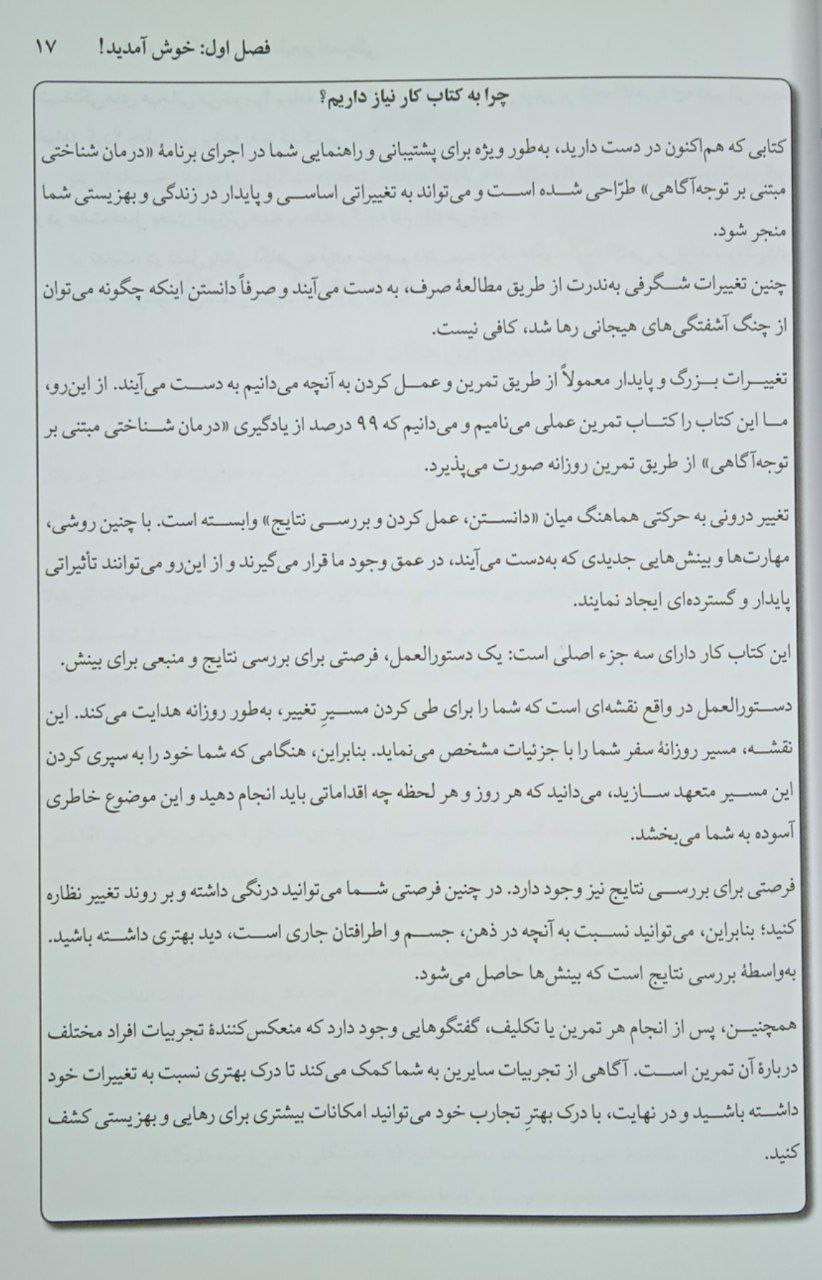 فصل اول: خوش آمدید!   ۱۷
چرا به کتاب کار نیاز داریم؟
کتابی که هم‌اکنون در دست دارید، به‌طور ویژه برای پشتیبانی و راهنمایی شما در اجرای برنامهٔ «درمان شناختی
مبتنی بر توجه‌آگاهی» طرّاحی شده است و می‌تواند به تغییراتی اساسی و پایدار در زندگی و بهزیستی شما
منجر شود.
چنین تغییرات شگرفی به‌ندرت از طریق مطالعهٔ صرف، به دست می‌آیند و صرفاً دانستن اینکه چگونه می‌توان
از چنگ آشفتگی‌های هیجانی رها شد، کافی نیست.
تغییرات بزرگ و پایدار معمولاً از طریق تمرین و عمل کردن به آنچه می‌دانیم به دست می‌آیند. از این‌رو،
ما این کتاب را کتاب تمرین عملی می‌نامیم و می‌دانیم که ۹۹ درصد از یادگیری «درمان شناختی مبتنی بر
توجه‌آگاهی» از طریق تمرین روزانه صورت می‌پذیرد.
تغییر درونی به حرکتی هماهنگ میان «دانستن، عمل کردن و بررسی نتایج» وابسته است. با چنین روشی،
مهارت‌ها و بینش‌هایی جدیدی که به‌دست می‌آیند، در عمق وجود ما قرار می‌گیرند و از این‌رو می‌توانند تأثیراتی
پایدار و گسترده‌ای ایجاد نمایند.
این کتاب کار دارای سه جزء اصلی است: یک دستورالعمل، فرصتی برای بررسی نتایج و منبعی برای بینش.
دستورالعمل در واقع نقشه‌ای است که شما را برای طی کردن مسیرِ تغییر، به‌طور روزانه هدایت می‌کند. این
نقشه، مسیر روزانهٔ سفر شما را با جزئیات مشخص می‌نماید. بنابراین، هنگامی که شما خود را به سپری کردن
این مسیر متعهد سازید، می‌دانید که هر روز و هر لحظه چه اقداماتی باید انجام دهید و این موضوع خاطری
آسوده به شما می‌بخشد.
فرصتی برای بررسی نتایج نیز وجود دارد. در چنین فرصتی شما می‌توانید درنگی داشته و بر روند تغییر نظاره
کنید؛ بنابراین، می‌توانید نسبت به آنچه در ذهن، جسم و اطرافتان جاری است، دید بهتری داشته باشید.
به‌واسطهٔ بررسی نتایج است که بینش‌ها حاصل می‌شود.
همچنین، پس از انجام هر تمرین یا تکلیف، گفتگوهایی وجود دارد که منعکس‌کنندهٔ تجربیات افراد مختلف
دربارهٔ آن تمرین است. آگاهی از تجربیات سایرین به شما کمک می‌کند تا درک بهتری نسبت به تغییرات خود
داشته باشید و در نهایت، با درک بهترِ تجارب خود می‌توانید امکانات بیشتری برای رهایی و بهزیستی کشف
کنید.